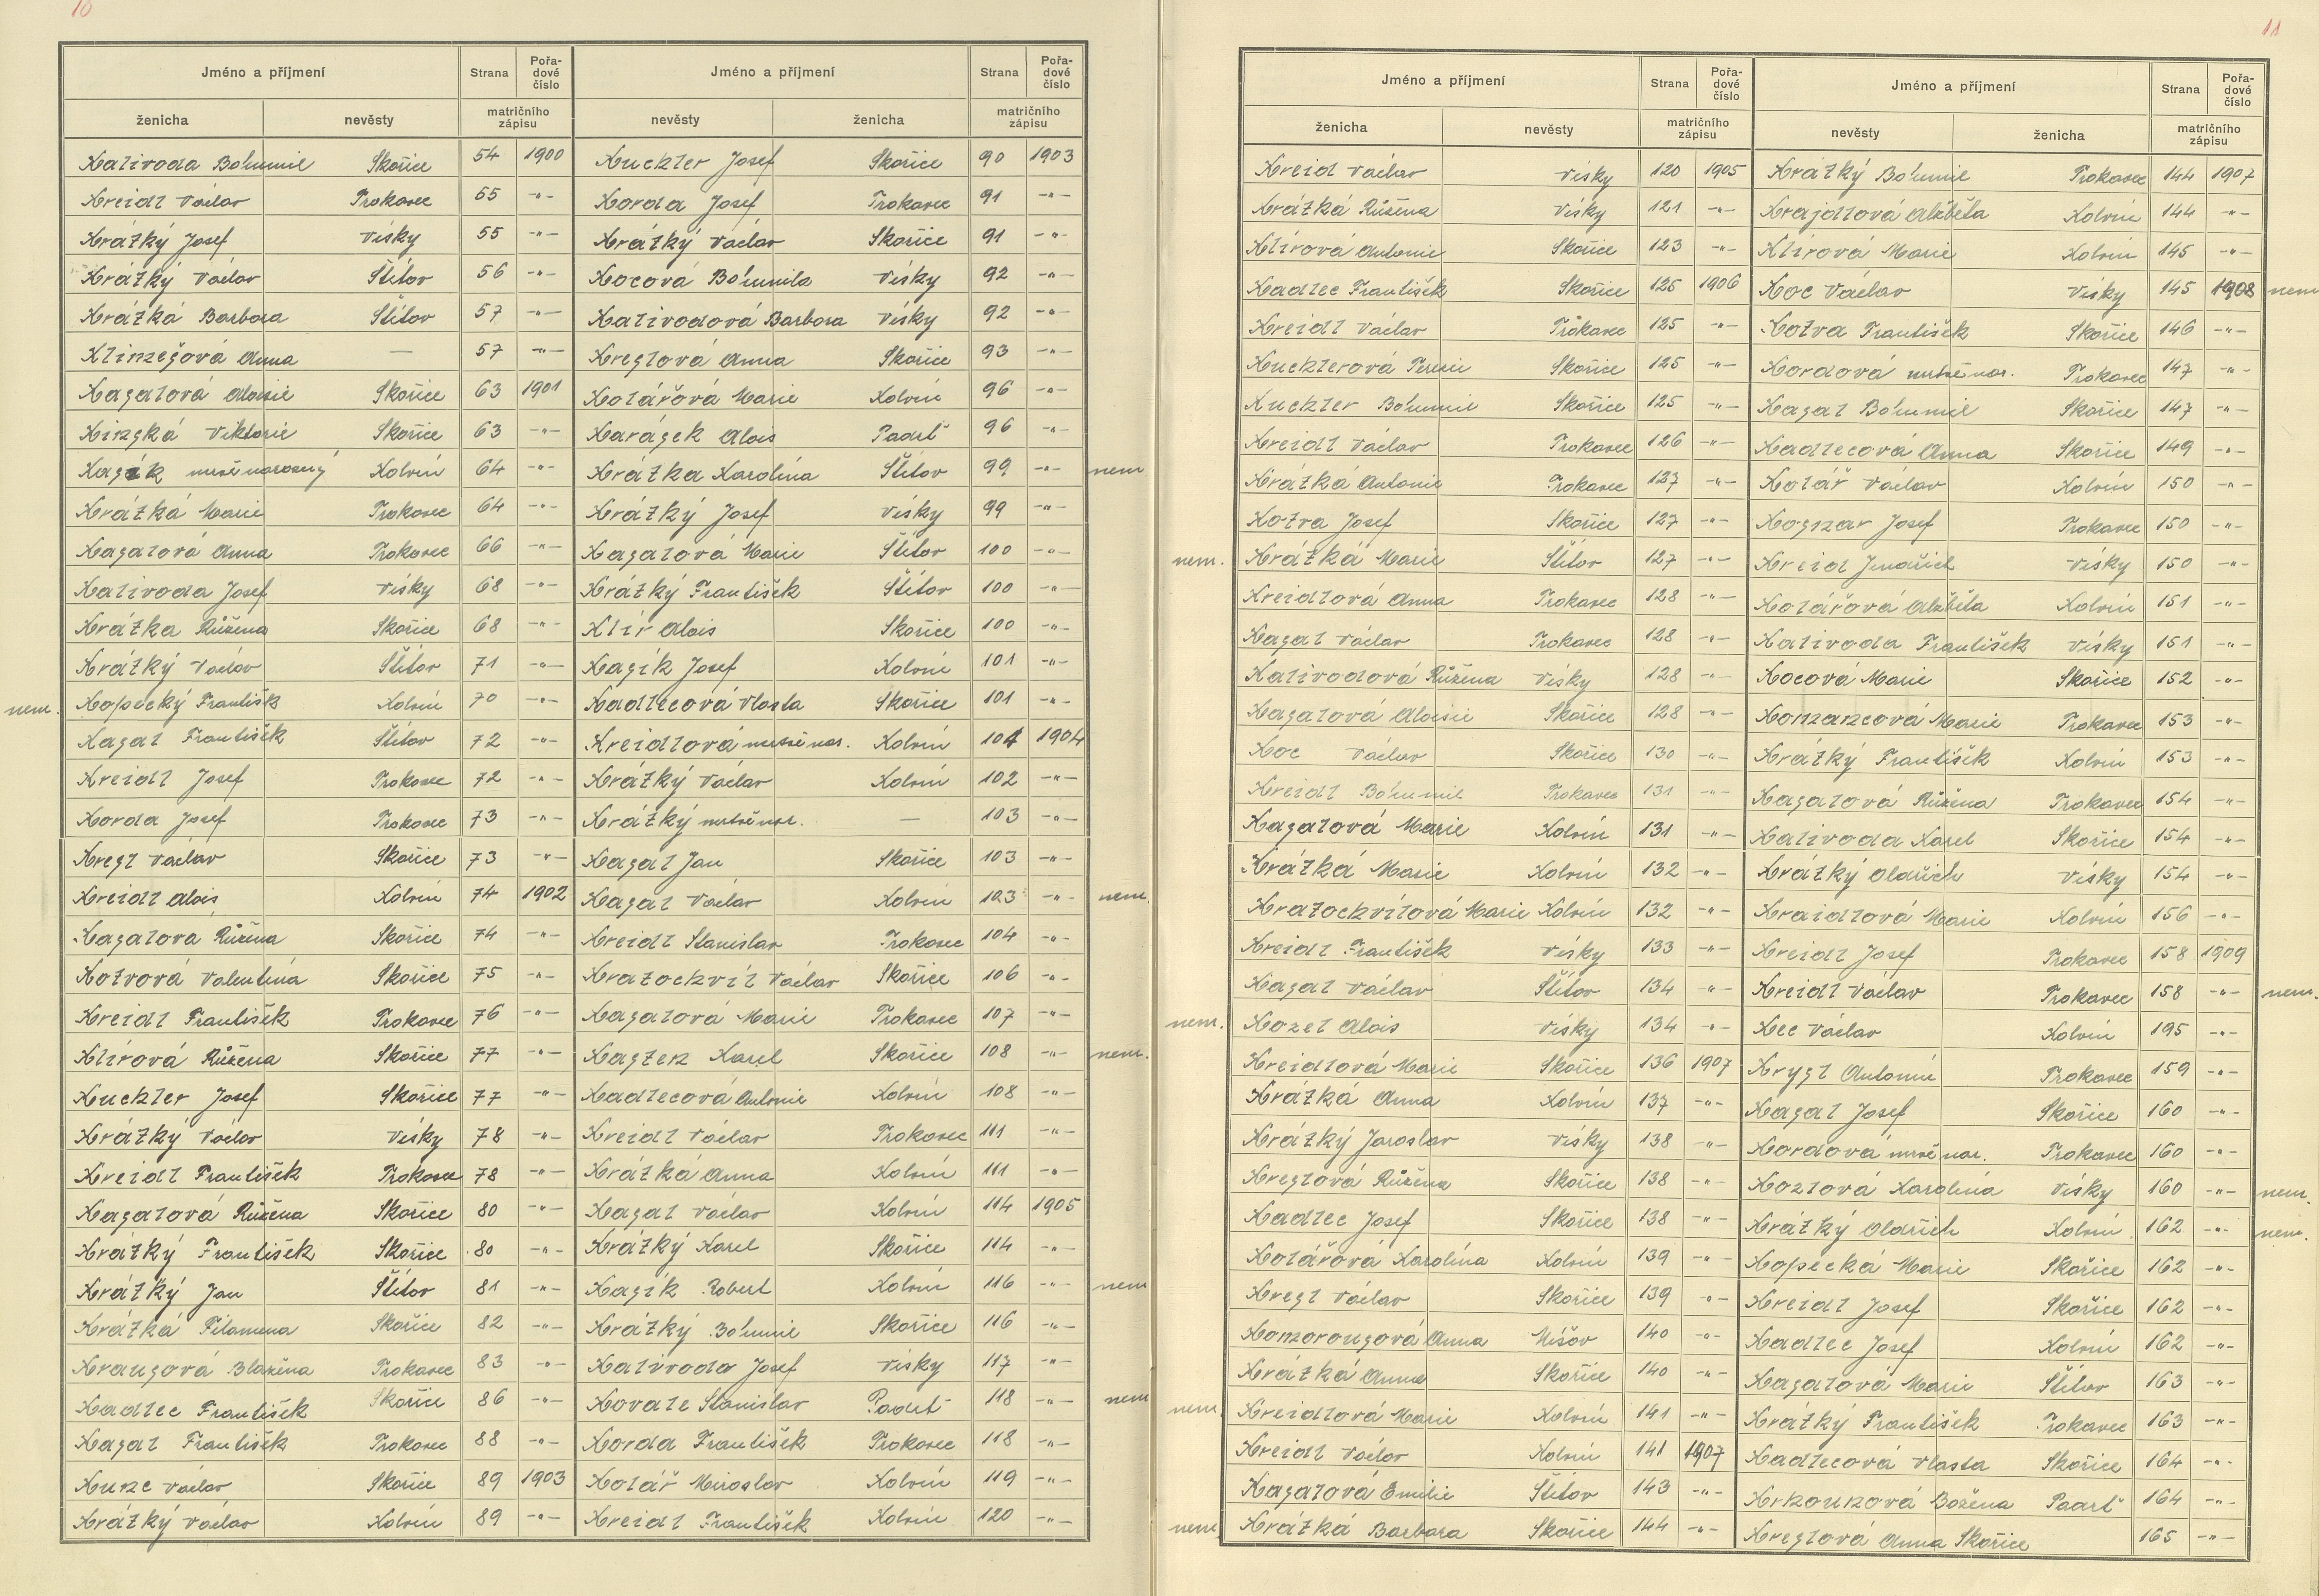 10
Jméno a příjmení Strana Pořadové číslo Jméno a příjmení Strana Pořadové číslo
ženicha nevěsty matričního zápisu nevěsty ženicha matričního zápisu
Kalivoda Bohumil Skořice 54 1900 Kuchler Josef Skořice 90 1903
Kreidl Václav Trokavec 55 -"- Korda Josef Trokavec 91 -"-
Krátký Josef Vísky 55 -"- Krátký Václav Skořice 91 -"-
Krátký Václav Štítov 56 -"- Kocová Bohumila Vísky 92 -"-
Krátká Barbora Štítov 57 -"- Kalivodová Barbora Vísky 92 -"-
Klinzešová Anna — 57 -"- Kreglová Anna Skořice 93 -"-
Kagalová Aloisie Skořice 63 1901 Kolářová Marie Kolvín 96 -"-
Kinzská Viktorie Skořice 63 -"- Karásek Alois Padrť 96 -"-
mrtvě narozený Kolvín 64 -"- Krátka Karolína Štítov 99 -"- nem
Krátká Marie Trokavec 64 -"- Krátký Josef Vísky 99 -"-
Kagalová Anna Trokavec 66 -"- Kagalová Marie Štítov 100 -"-
Kalivoda Josef Vísky 68 -"- Krátký František Štítov 100 -"-
Krátka Růžena Skořice 68 -"- Klír Alois Skořice 100 -"-
Krátký Václav Štítov 71 -"- Kagík Josef Kolvín 101 -"-
nem. Kopecký František Kolvín 70 -"- Kadlecová Vlasta Skořice 101 -"-
Kagal František Štítov 72 -"- Kreidlová mrtvě nar. Kolvín 101 1904
Kreidl Josef Trokavec 72 -"- Krátký Václav Kolvín 102 -"-
Korda Josef Trokavec 73 -"- Krátký mrtvě nar. — 103 -"-
Kregl Václav Skořice 73 -"- Kagal Jan Skořice 103 -"-
Kreidl Alois Kolvín 74 1902 Kagal Václav Kolvín 103 -"- nem.
Kagalová Růžena Skořice 74 -"- Kreidl Stanislav Trokavec 104 -"-
Kotvová Valentina Skořice 75 -"- Kratochvíl Václav Skořice 106 -"-
Kreidl František Trokavec 76 -"- Kagalová Marie Trokavec 107 -"-
Klírová Růžena Skořice 77 -"- Karel Skořice 108 -"- nem.
Kuchler Josef Skořice 77 -"- Kadlecová Antonie Kolvín 108 -"-
Krátký Václav Vísky 78 -"- Kreidl Václav Trokavec 111 -"-
Kreidl František Trokavec 78 -"- Krátká Anna Kolvín 111 -"-
Kagalová Růžena Skořice 80 -"- Kagal Václav Kolvín 114 1905
Krátký František Skořice 80 -"- Krátký Karel Skořice 114 -"-
Krátký Jan Štítov 81 -"- Kagík Robert Kolvín 116 -"- nem
Krátká Filomena Skořice 82 -"- Krátký Bohumil Skořice 116 -"-
Krausová Blažena Trokavec 83 -"- Kalivoda Josef Vísky 117 -"-
Kadlec František Skořice 86 -"- Stanislav Padrť 118 -"- nem
Kagal František Trokavec 88 -"- Korda František Trokavec 118 -"-
Kunc Václav Skořice 89 1903 Kolář Miroslav Kolvín 119 -"-
Krátký Václav Kolvín 89 -"- Kreidl František Kolvín 120 -"-
11
Jméno a příjmení Strana Pořadové číslo Jméno a příjmení Strana Pořadové číslo
ženicha nevěsty matričního zápisu nevěsty ženicha matričního zápisu
Kreidl Václav Vísky 120 1905 Krátký Bohumil Trokavec 144 1907
Krátká Růžena Vísky 121 -"- Krajdlová Alžběta Kolvín 144 -"-
Klírová Antonie Skořice 123 -"- Klírová Marie Kolvín 145 -"-
Kadlec František Skořice 125 1906 Koc Václav Vísky 145 1908 nem
Kreidl Václav Trokavec 125 -"- Kotva František Skořice 146 -"-
Kuchlerová Terezie Skořice 125 -"- Kordová mrtvě nar. Trokavec 147 -"-
Kuchler Bohumil Skořice 125 -"- Kagal Bohumil Skořice 147 -"-
Kreidl Václav Trokavec 126 -"- Kadlecová Anna Skořice 149 -"-
Krátká Antonie Trokavec 127 -"- Kolář Václav Kolvín 150 -"-
Kotva Josef Skořice 127 -"- Kognar Josef Trokavec 150 -"-
nem. Krátká Marie Štítov 127 -"- Kreidl Jindřich Vísky 150 -"-
Kreidlová Anna Trokavec 128 -"- Kolářová Alžběta Kolvín 151 -"-
Kagal Václav Trokavec 128 -"- Kalivoda František Vísky 151 -"-
Kalivodová Růžena Vísky 128 -"- Kocová Marie Skořice 152 -"-
Kagalová Aloisie Skořice 128 -"- Marie Trokavec 153 -"-
Koc Václav Skořice 130 -"- Krátký František Kolvín 153 -"-
Kreidl Bohumil Trokavec 131 -"- Kagalová Růžena Trokavec 154 -"-
Kagalová Marie Kolvín 131 -"- Kalivoda Karel Skořice 154 -"-
Krátká Marie Kolvín 132 -"- Krátký Oldřich Vísky 154 -"-
Kratochvílová Marie Kolvín 132 -"- Kraidlová Marie Kolvín 156 -"-
Kreidl František Vísky 133 -"- Kreidl Josef Trokavec 158 1909
Kagal Václav Štítov 134 -"- Kreidl Václav Trokavec 158 -"- nem.
nem. Kozel Alois Vísky 134 -"- Kec Václav Kolvín 195 -"-
Kreidlová Marie Skořice 136 1907 Krygl Antonín Trokavec 159 -"-
Krátká Anna Kolvín 137 -"- Kagal Josef Skořice 160 -"-
Krátký Jaroslav Vísky 138 -"- Kordová mrtvě nar. Trokavec 160 -"-
Kreglová Růžena Skořice 138 -"- Kozlová Karolína Vísky 160 -"- nem.
Kadlec Josef Skořice 138 -"- Krátký Oldřich Kolvín 162 -"- nem.
Kolářová Karolína Kolvín 139 -"- Kopecká Marie Skořice 162 -"-
Kregl Václav Skořice 139 -"- Kreidl Josef Skořice 162 -"-
Komorousová Anna Míšov 140 -"- Kadlec Josef Kolvín 162 -"-
Krátká Anna Skořice 140 -"- Kagalová Marie Štítov 163 -"-
nem. Kreidlová Marie Kolvín 141 -"- Krátký František Trokavec 163 -"-
Kreidl Václav Kolvín 141 1907 Kadlecová Vlasta Skořice 164 -"-
Kagalová Emilie Štítov 143 -"- Božena Padrť 164 -"-
nem. Krátká Barbora Skořice 144 -"- Kreglová Anna Skořice 165 -"-